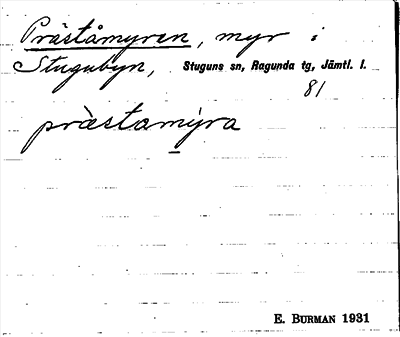 Präståmyren, myr i
Stugubyn, Stuguns sn, Ragunda tg, Jämtl. l.
81
prästamýra
E. BURMAN 1931